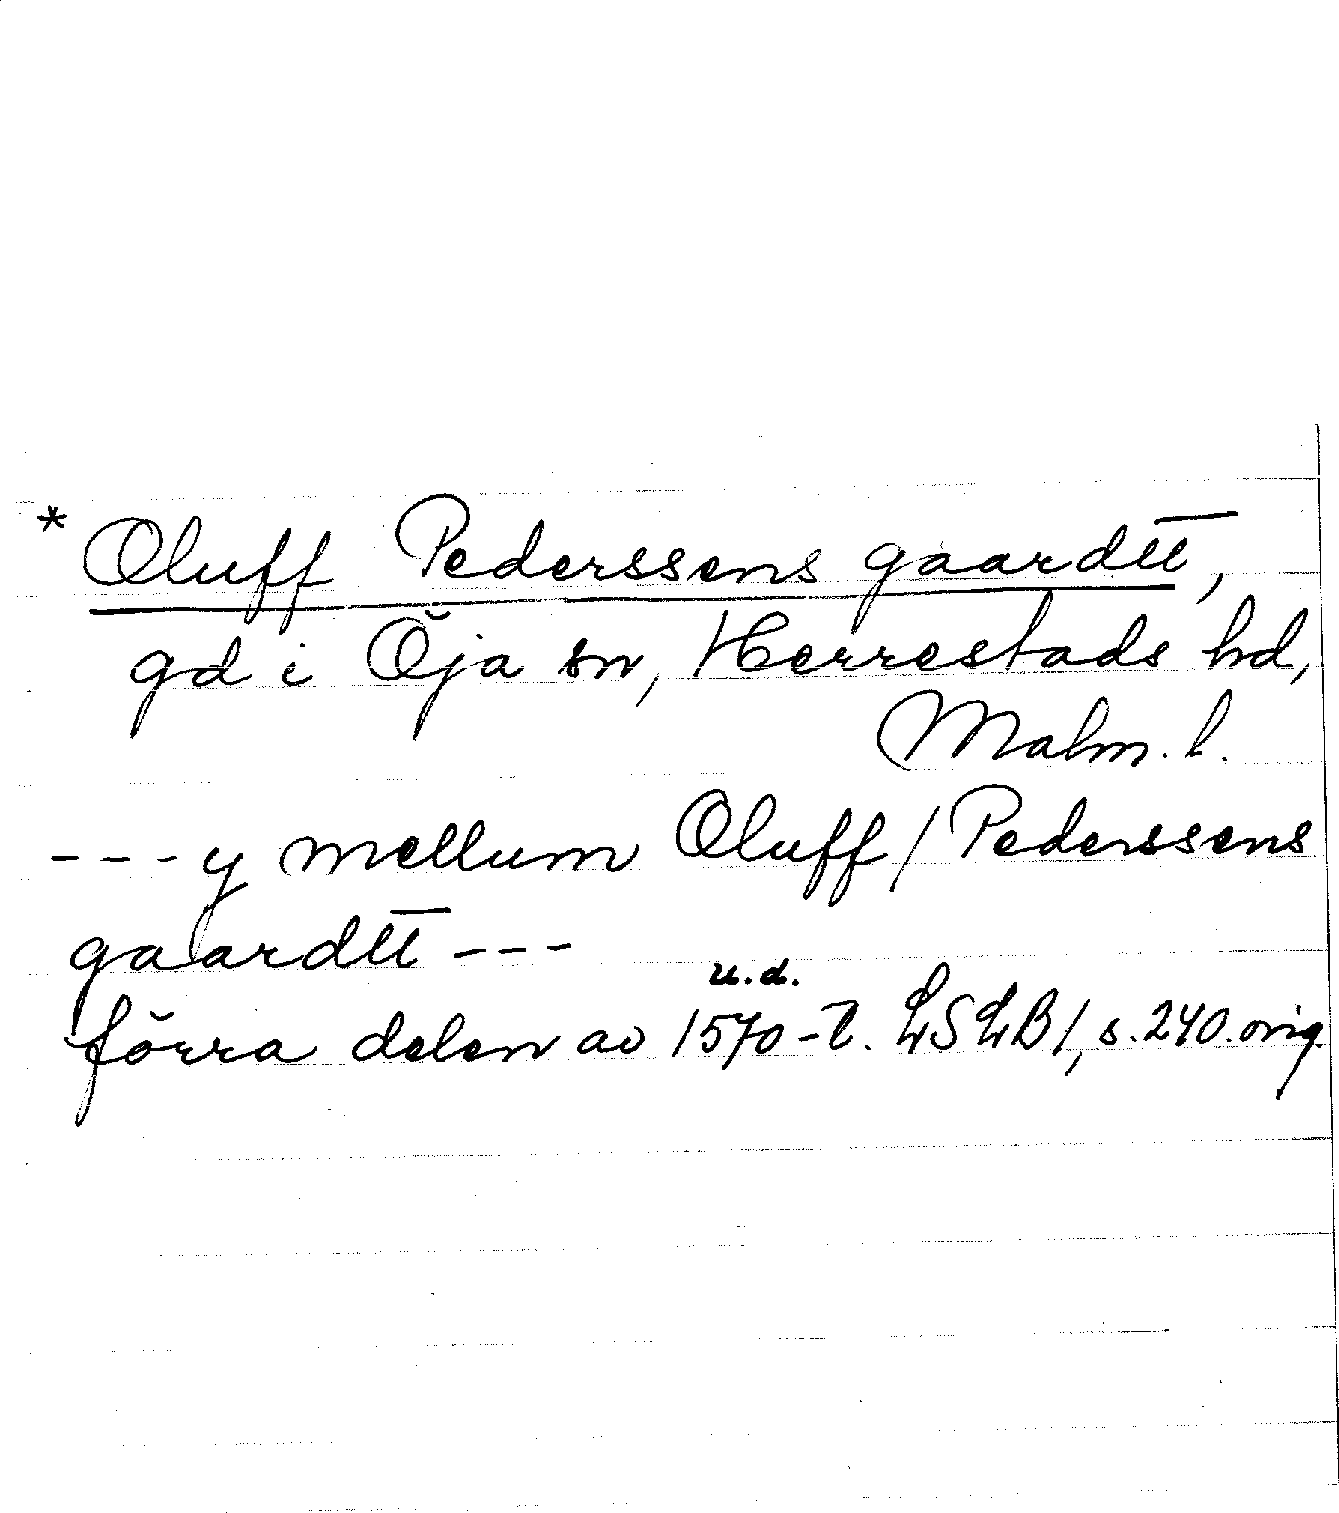 * Oluff Pederssens gaardtt̅,
gd i Öja sn, Herrestads hd,
Malm. l.
---y mellum Oluff / Pederssens
gaardtt̅ ---
u.d.
förra delen av 1570-t. LSLB1, s. 240. orig.